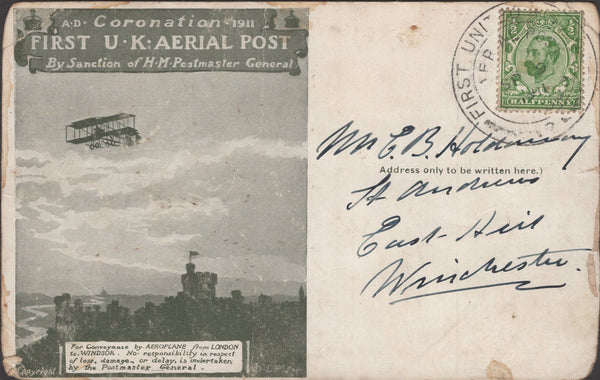 A·D· Coronation 1911
FIRST U·K· AERIAL POST
By Sanction of H·M·Postmaster General
For Conveyance by AEROPLANE from LONDON
to WINDSOR. No responsibility in respect
of loss, damage, or delay, is undertaken
by the Postmaster General.
Copyright
FIRST UNI
HALFPENNY
Mr E. B.
Address only to be written here.)
St Andrews
East Hill
Winchester.